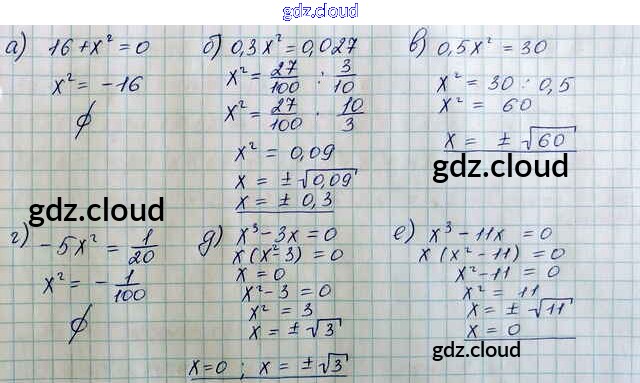 gdz.cloud
а) 16 + x² = 0
x² = -16
∅
б) 0,3x² = 0,027
x² = 27/100 : 3/10
x² = 27/100 · 10/3
x² = 0,09
x = ± √0,09
x = ± 0,3
в) 0,5x² = 30
x² = 30 : 0,5
x² = 60
x = ± √60
gdz.cloud
gdz.cloud
г) -5x² = 1/20
x² = - 1/100
∅
д) x³ - 3x = 0
x(x² - 3) = 0
x = 0
x² - 3 = 0
x² = 3
x = ± √3
x = 0 ; x = ± √3
е) x³ - 11x = 0
x(x² - 11) = 0
x² - 11 = 0
x² = 11
x = ± √11
x = 0
gdz.cloud